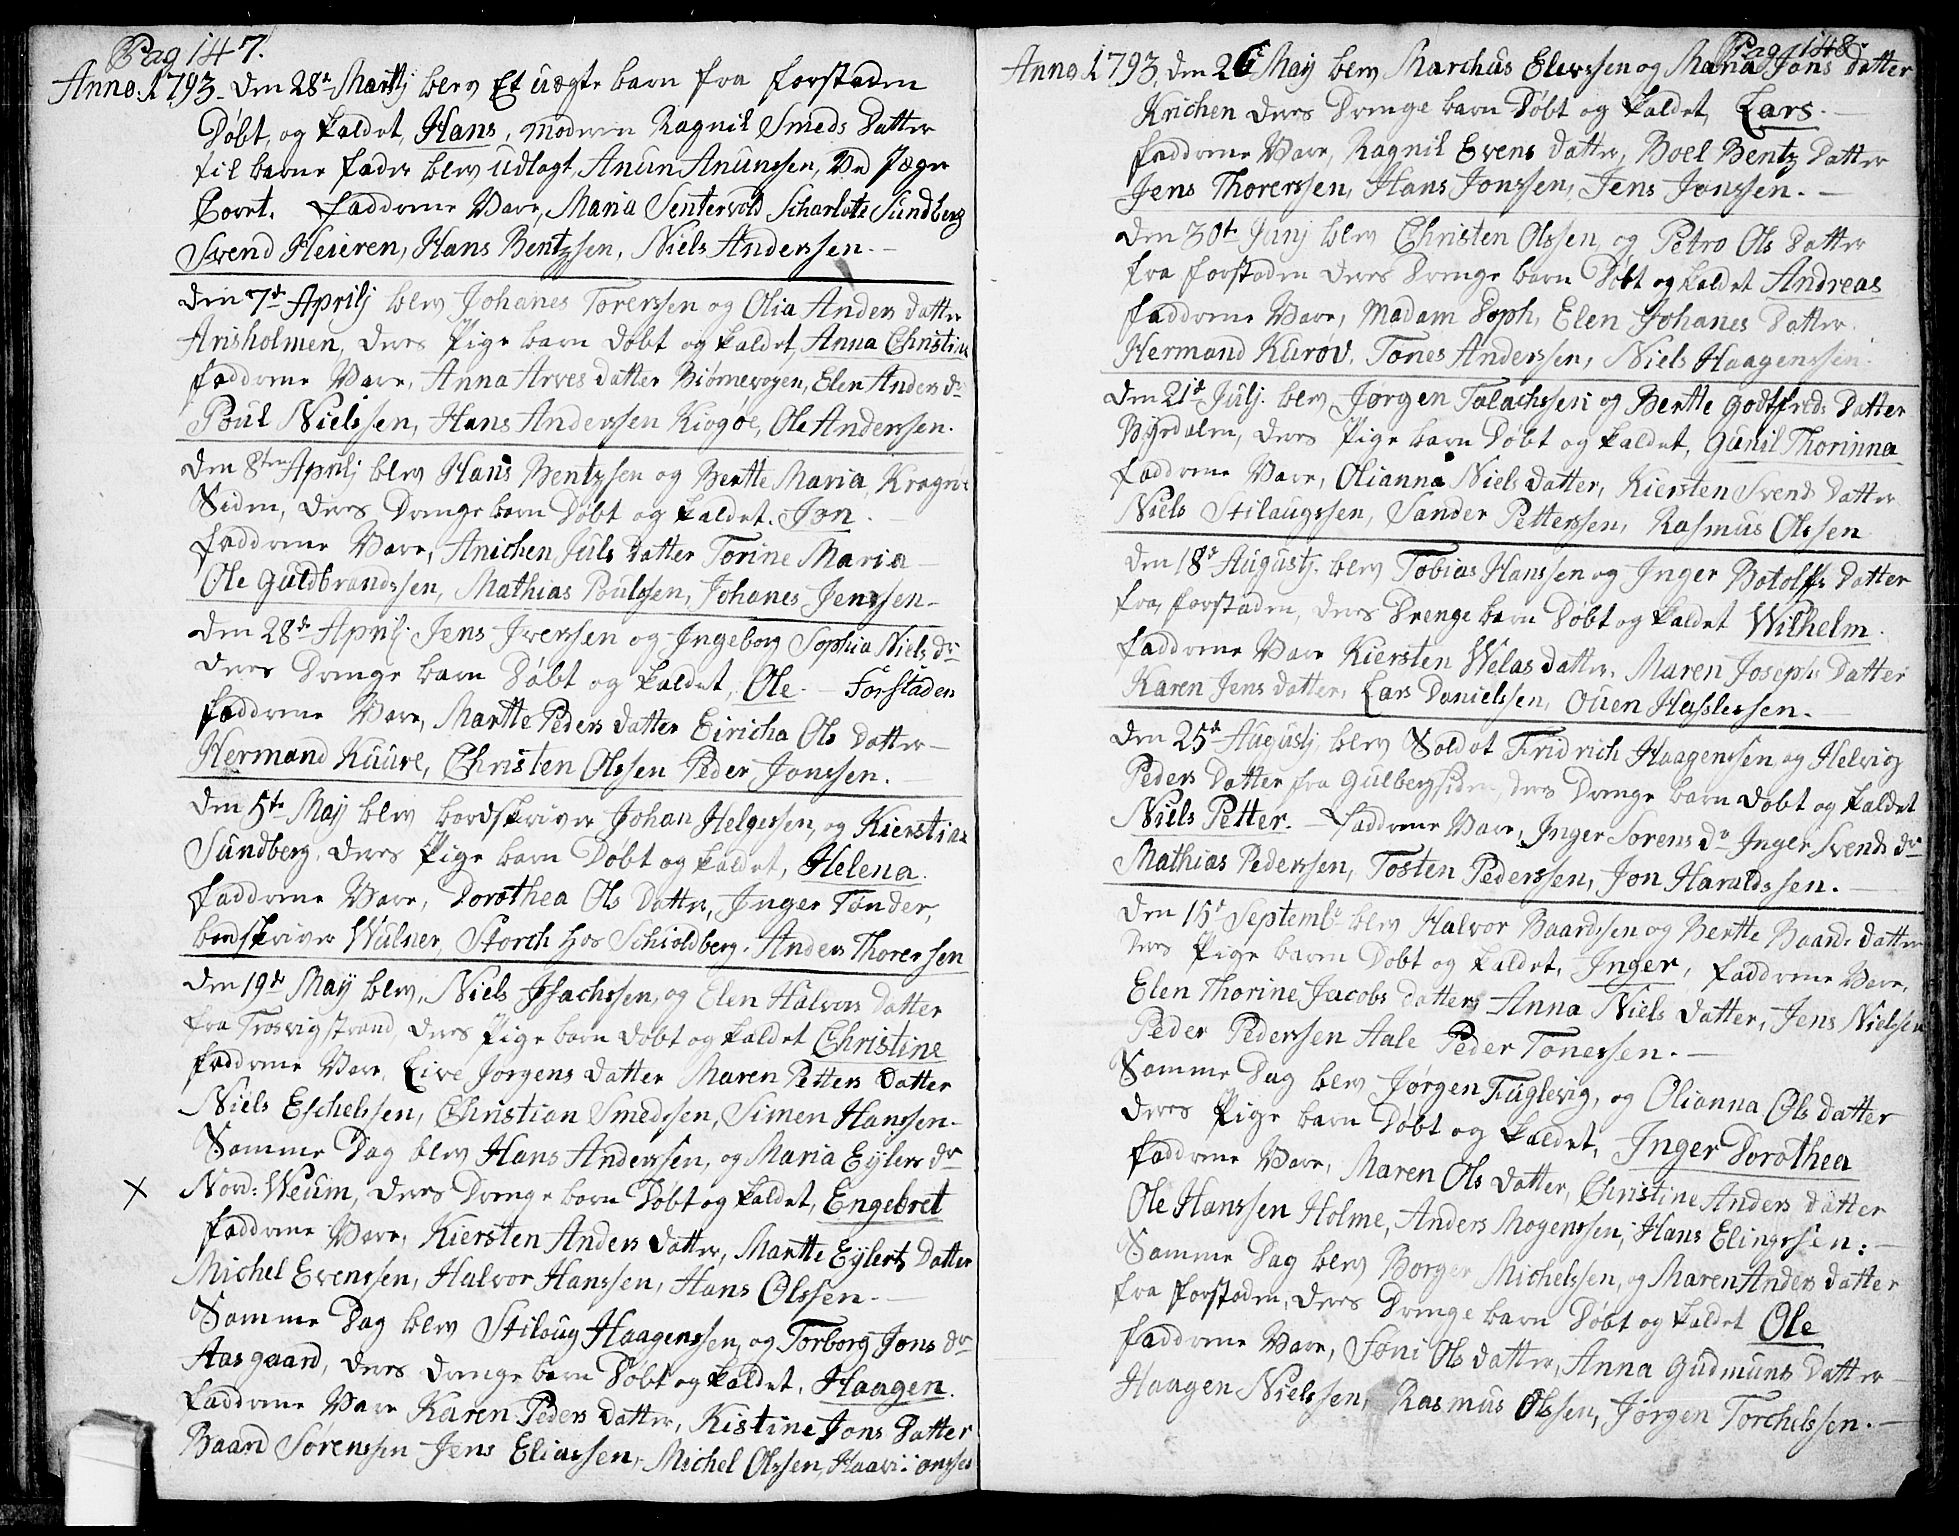 Pag 147.
Anno. 1793. Den 28de Martij blev Et uægte barn fra forstaden
Døbt, og kaldet, Hans, moderen Ragnil Smeds Datter
til barne fader blev udlagt, Anun Anunssen, Ved Jæger
Coret. Faddrene Vare, Maria Sentervold Scharlote Sundberg
Svend Heieren, Hans Bentzsen, Niels Anderssen.
Den 7de Aprilj blev Johanes Torerssen og Olia Anders Datter
Arisholmen, deres Pige barn Døbt og kaldet, Anna Christine
faddrene Vare, Anna Arves datter Biørnevogen, Elen Anders dr
Poul Nielssen, Hans Anderssen Kiogøe, Ole Anderssen.
Den 8ten Aprilj blev Hans Bentzsen og Bertte Maria, Kragerøe
Siden, deres Drenge barn Døbt og kaldet. Jon.
faddrene Vare, Anichen Juls Datter Torine Maria
Ole Guldbrandssen, Mathias Poulssen, Johanes Jenssen.
Den 28de Aprilj Jens Iverssen og Ingeborg Sophia Niels dr
deres Drenge barn Døbt og kaldet, Ole. — Forstaden
faddrene Vare, Martte Peders datter Eiricha Ols Datter
Hermand Kuure, Christen Olssen Peder Jonssen.
Den 5te May blev bordskriver Johan Helgessen, og Kierstine
Sundberg, deres Pige barn Døbt og kaldet, Helena.
faddrene Vare, Dorothea Ols Datter, Inger Tønder,
bordskriver Wulsner, Storch hos Schioldberg. Anders Thoressen
Den 19de May blev, Niels Isachssen, og Elen Halvors Datter
fra Trosvigstrand, deres Pige barn Døbt og kaldet Christine
faddrene Vare, Live Jorgens datter Maren Petters Datter
Niels Eschelssen, Christian Smedssen, Simen Hanssen.
Samme Dag blev Hans Anderssen, og Maria Eylers dr
× Nord: Weum, deres Drenge barn Døbt og kaldet, Engebret
faddrene Vare, Kiersten Anders datter, Martte Eylerts Datter
Michel Evenssen, Halvor Hanssen, Hans Olssen.
Samme Dag blev Stiloug Haagenssen, og Torborg Jons dr
Aasgaard, deres drenge barn Døbt og kaldet, Haagen.
faddrene Vare Karen Peders Datter, Kistine Jons Datter
Baard Sorenssen Jens Eliassen, Michel Olssen,
Pag. 148.
Anno. 1793, den 26de May blev Marchus Elerssen og Maria Jons datter
Krichen deres Drenge barn Døbt og kaldet, Lars.
faddrene Vare, Ragnil Evens datter, Boel Bentz datter
Jens Thorerssen, Hans Jonssen, Jens Jonssen.
Den 30te Junj blev Christen Olssen, og Petro Ols Datter
fra forstaden deres Drenge barn Døbt og kaldet Andreas
faddrene Vare, Madam Doph, Elen Johanes Datter.
Hermand Kurov, Tones Anderssen, Niels Haagenssen.
Den 21de Julj. blev Jørgen Talachssen og Bertte Godtfreds Datter
Byrdalen, deres Pige barn Døbt og kaldet, Gunil Thorinna
faddrene Vare, Olianna Niels datter, Kiersten Svends datter
Niels Stilaugssen, Sander Petterssen, Rasmus Olssen
Den 18de Augustj. blev Tobias Hanssen og Inger Botolffs Datter
fra, forstaden, deres Drenge barn Døbt og kaldet Wilhelm.
faddrene Vare Kiersten Welas datter, Maren Josephs Datter
Karen Jens datter, Lars Danielssen, Ouen Hasslessen.
Den 25de Augustj blev Soldat Fridrich Haagenssen og Helvig
Peders Datter fra Gulbergsiden, deres Drenge barn Døbt og kaldet
Niels Petter. — Faddrene Vare, Inger Sorens dr Inger Svends dr
Mathias Pederssen, Tosten Pederssen, Jon Haraldssen.
Den 15de Septembr blev Halvor Baardssen og Bertte Baards datter
deres Pige barn Døbt og kaldet, Inger, faddrene Vare,
Elen Thorine Jacobs datter, Anna Niels datter, Jens Nielssen
Peder Pederssen Aale Peder Tonessen.
Samme Dag blev Jørgen Fuglevig, og Olianna Ols datter
deres Pige barn Døbt og kaldet, Inger Dorothea
faddrene Vare, Maren Ols datter, Christine Anders datter
Ole Hanssen Holme, Anders Mogenssen, Hans Elingssen:
Samme Dag blev Borger Michelssen, og Maren Anders datter
fra forstaden, deres Drenge barn Døbt og kaldet Ole
faddrene Vare, Toni Ols datter, Anna Gudmuns Datter
Haagen Nielssen, Rasmus Olssen, Jørgen Torchelssen.